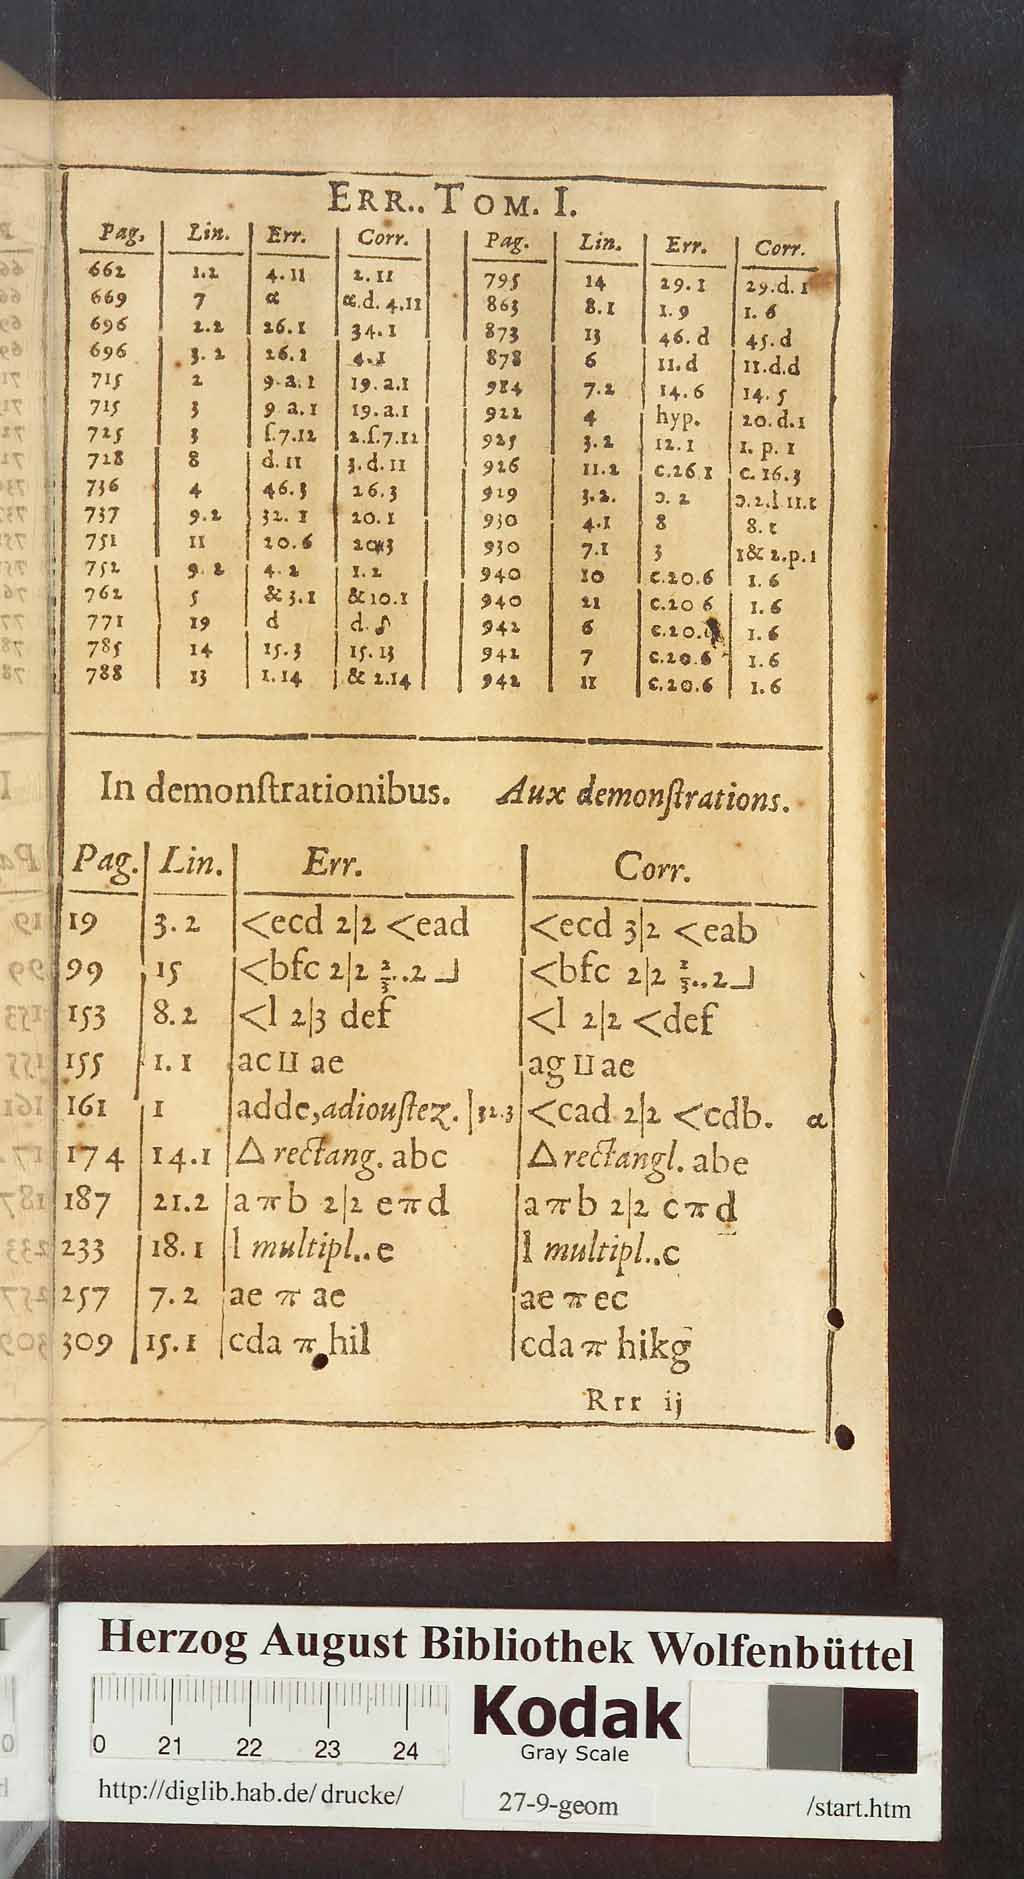 ERR.. TOM. I.
Pag, Lin. Err. Corr. Pag. Lin. Err. Corr.
662 1.2 4.11 2.11 795 14 29.1 29.d.1
669 7 α α.d. 4.11 863 8.1 1.9 1.6
696 2.2 26.1 34.1 873 13 46.d 45.d
696 3.2 26.1 4.1 878 6 11.d 11.d.d
715 2 9.a.1 19.a.1 984 7.2 14.6 14.5
715 3 9 a.1 19.a.1 922 4 hyp. 20.d.1
725 3 ſ.7.12 2.ſ.7.12 925 3.2 12.1 1.p.1
728 8 d.11 3.d.11 926 11.2 c.26 1 c.16.3
736 4 46.3 26.3 929 3.2. ɔ.2 ɔ.2.l 11.t
737 9.2 32.1 20.1 930 4.1 8 8.t
751 11 20.6 20 3 930 7.1 3 1& 2.p.1
752 9.2 4.2 1.2 940 10 c.20.6 1.6
762 5 & 3.1 & 10.1 940 21 c.20 6 1.6
771 19 d d. 942 6 c.20. 1.6
785 14 15.3 15.13 942 7 c.20.6 1.6
788 13 1.14 & 2.14 942 11 c.20.6 1.6
In demonſtrationibus. Aux demonſtrations.
Pag. Lin. Err. Corr.
19 3.2 <ecd 2|2 <ead <ecd 3|2 <eab
99 15 <bfc 2|2 2/3..2 ┘ <bfc 2|2 2/3..2┘
153 8.2 <l 2|3 def <l 2|2 <def
155 1.1 ac ⊔ ae ag ⊔ ae
161 1 adde, adiouſtez. |32.3 <cad 2|2 <cdb. α
174 14.1 △ rectang. abc △ rectangl. abe
187 21.2 a π b 2|2 e π d a π b 2|2 c π d
233 18.1 l multipl.. e l multipl..c
257 7.2 ae π ae ae π ec
309 15.1 cda π hil cda π hikg
Rrr ij
Herzog August Bibliothek Wolfenbüttel
0 21 22 23 24
Kodak
Gray Scale
http://diglib.hab.de/drucke/ 27-9-geom /start.htm